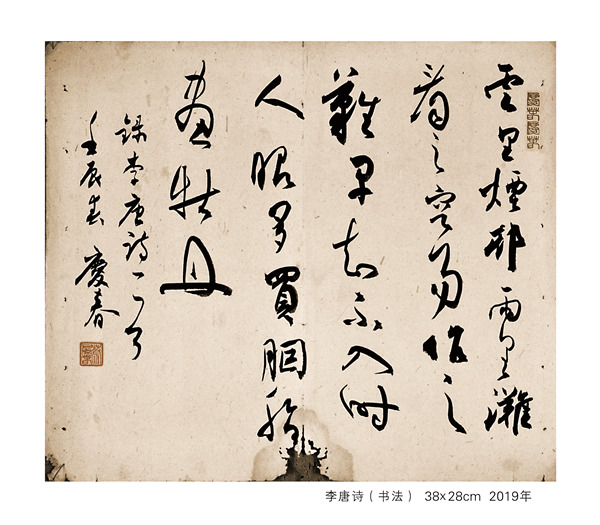 雲里煙邨雨里灘
看之容易作之
難早知不入时
人眼多買胭脂
畫牡丹
錄李唐诗一首
壬辰春 慶春
李唐诗（书法） 38×28cm 2019年